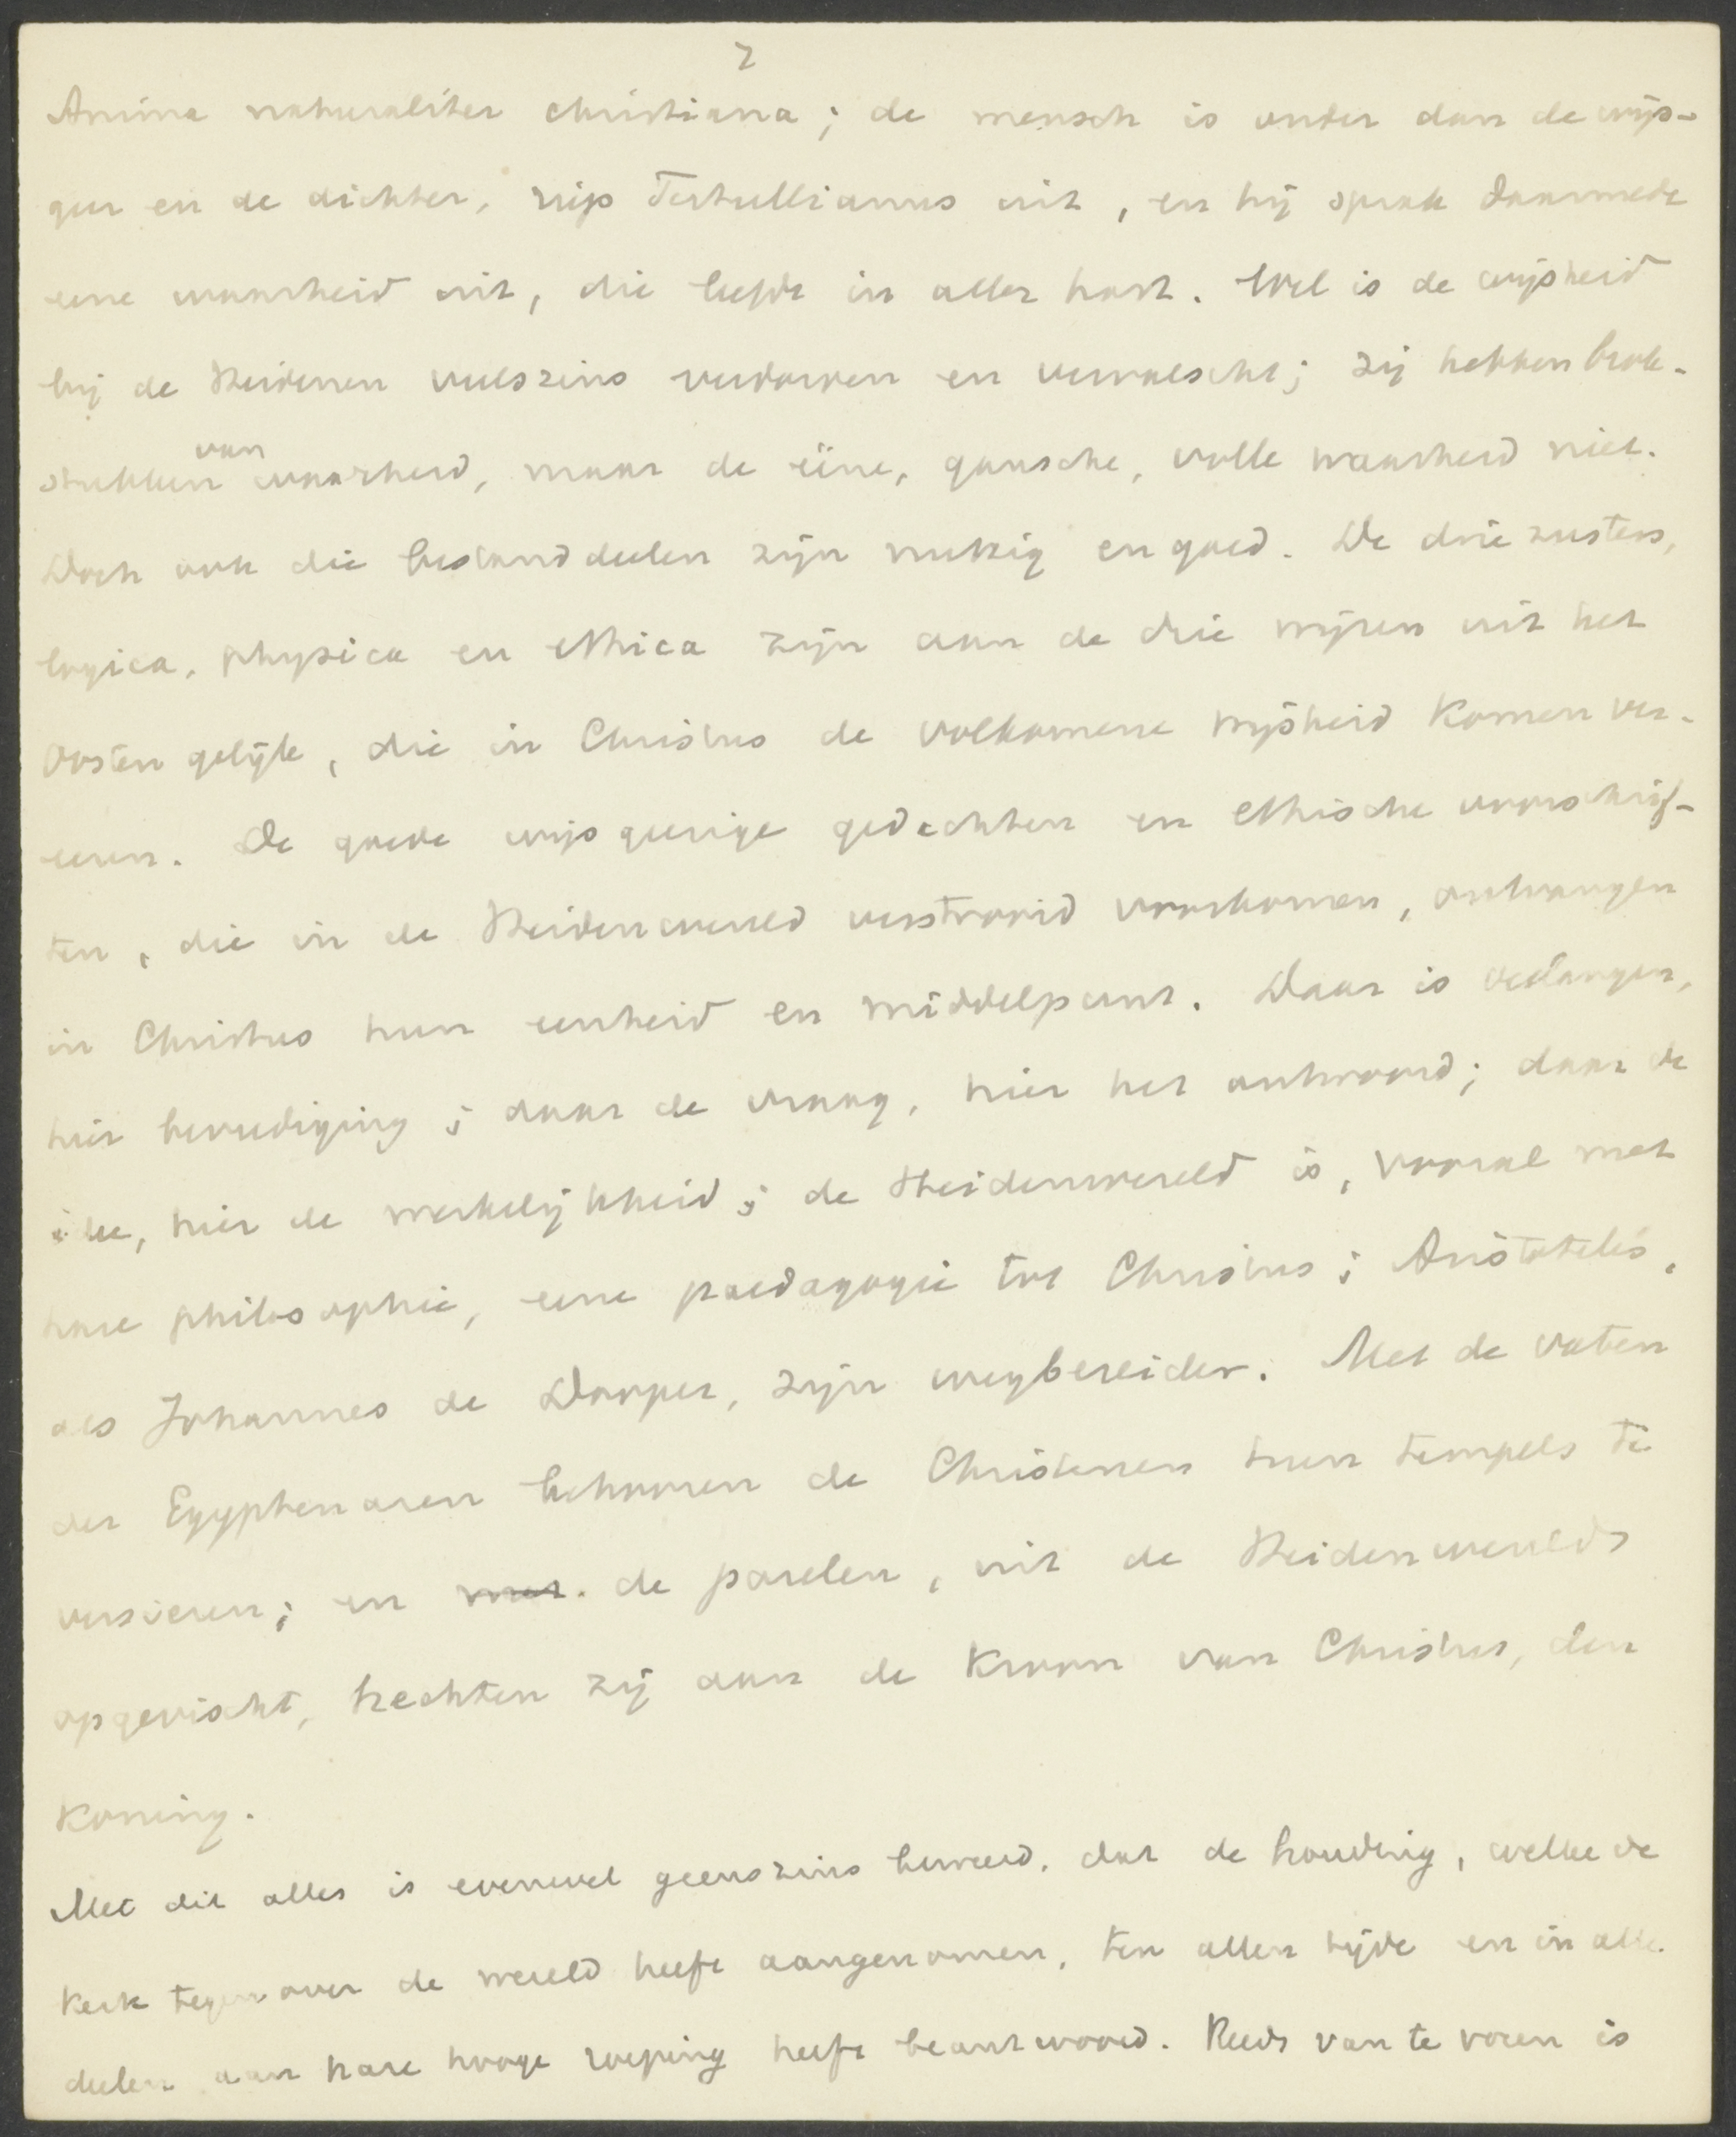 7
Anima naturaliter christiana; de mensch is ouder dan de wijs-
geer en de dichter, riep Tertullianus uit, en hij sprak daarmede
eene waarheid uit, die leefde in aller hart. Wel is de wijsheid
bij de Heidenen veelszins verdorven en vervalscht; zij hebben brok-
stukken van waarheid, maar de ééne, gansche, volle waarheid niet.
Doch ook die bestanddeelen zijn nuttig en goed. De drie zusters,
logica, physica en ethica zijn aan de drie wijzen uit het
Oosten gelijk, die in Christus de volkomene wijsheid komen ver-
eeren. De goede wijsgeerige gedachten en ethische voorschrif-
ten, die in de Heidenwereld verstrooid voorkomen, ontvangen
in Christus hun eenheid en middelpunt. Daar is verlangen,
hier bevrediging; daar de vraag, hier het antwoord; daar de
idee, hier de werkelijkheid; de Heidenwereld is, vooral met
hare philosophie, eene paedagogie tot Christus; Aristoteles,
als Johannes de Dooper, zijn wegbereider. Met de vaten
der Egyptenaren behooren de Christenen hun tempels te
versieren; en met de parelen, uit de Heidenwereld
opgevischt, hechten zij aan de Kroon van Christus, den
Koning.
Met dit alles is evenwel geenszins beweerd, dat de houding, welke de
Kerk tegenover de wereld heeft aangenomen, ten allen tijde en in alle
deelen aan hare hooge roeping heeft beantwoord. Reeds van te voren is